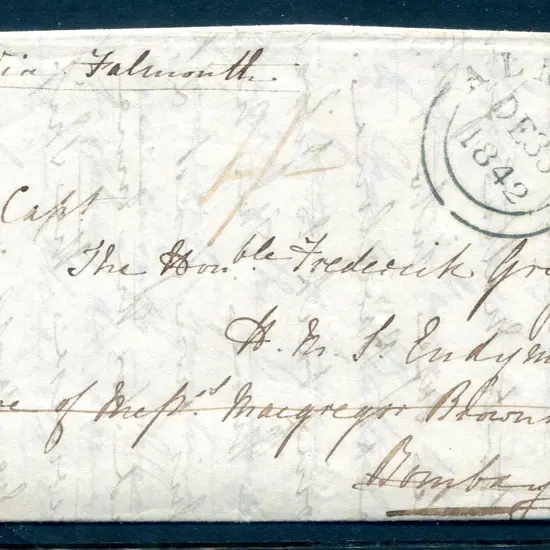 Via Falmouth.
AL
DE 3
1842
1/-
Capt
The Honble Frederick Gr
H. M. S. Endym
re of Messrs Macgregor Brown
Bombay